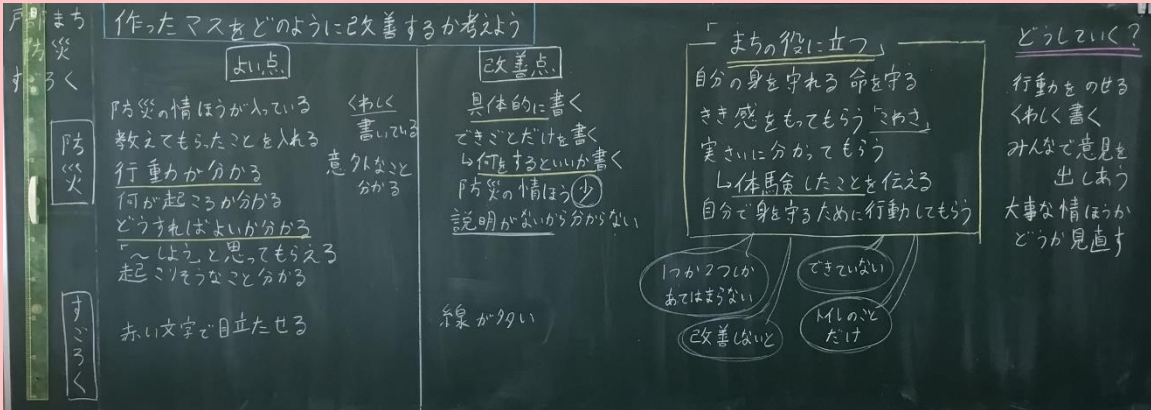 まち
防災
すごろく
作ったマスをどのように改善するか考えよう
防災
すごろく
よい点
防災の情ほうが入っている
教えてもらったことを入れる
行動が分かる
何が起こるか分かる
どうすればよいか分かる
「〜しよう」と思ってもらえる
起こりそうなこと分かる
赤い文字で目立たせる
くわしく
書いている
意外なこと
分かる
改善点
具体的に書く
できごとだけを書く
↳何をするといいか書く
防災の情ほう少
説明がないから分からない
線が多い
「まちの役に立つ」
自分の身を守れる 命を守る
きき感をもってもらう「こわさ」
実さいに分かってもらう
↳体験したことを伝える
自分で身を守るために行動してもらう
1つか2つしか
あてはまらない
改善しないと
できていない
トイレのこと
だけ
どうしていく?
行動をのせる
くわしく書く
みんなで意見を
出しあう
大事な情ほうか
どうか見直す